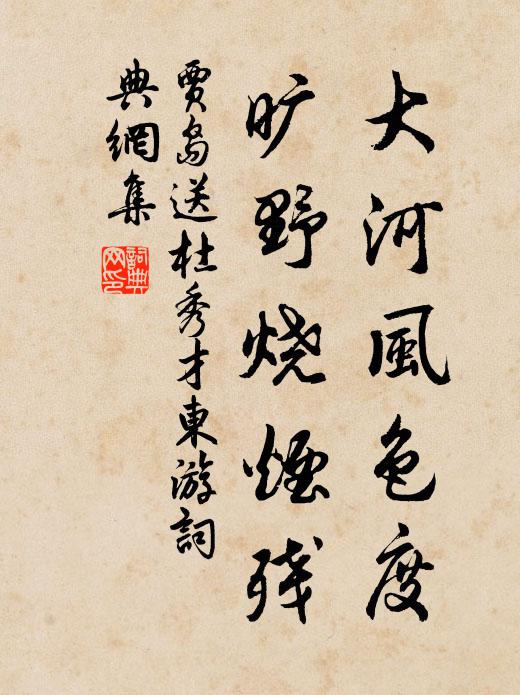 大河風色度
旷野烧煙残
賈島送杜秀才東游詞
典網集
詞典
网印